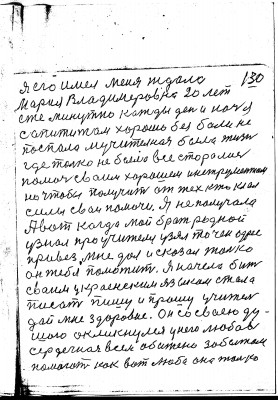 130
я его имел меня ждала
Мария Владимеровна 20 лет
сте минутно каждый ден и ноч я
с апититам хорошо без боли не
поспала мучителная была жизн
где толко не было все старалис
помоч сваим хорошем инструментам
но чтобы получит от тех кто клал
сили сваи помочи. Я не получала
А вот когда мой брат родной
узнал про учителя узял точен одне
привез мне дал и сказал толко
он тебя помотит. Я начела бит
сваим украенским язиком стала
писат пишу и прошу учител
дай мне здоровие. Он со своею ду-
шою окликнулся у него любов
сердечная всем обижено забитом
помогат как вот люба она толко